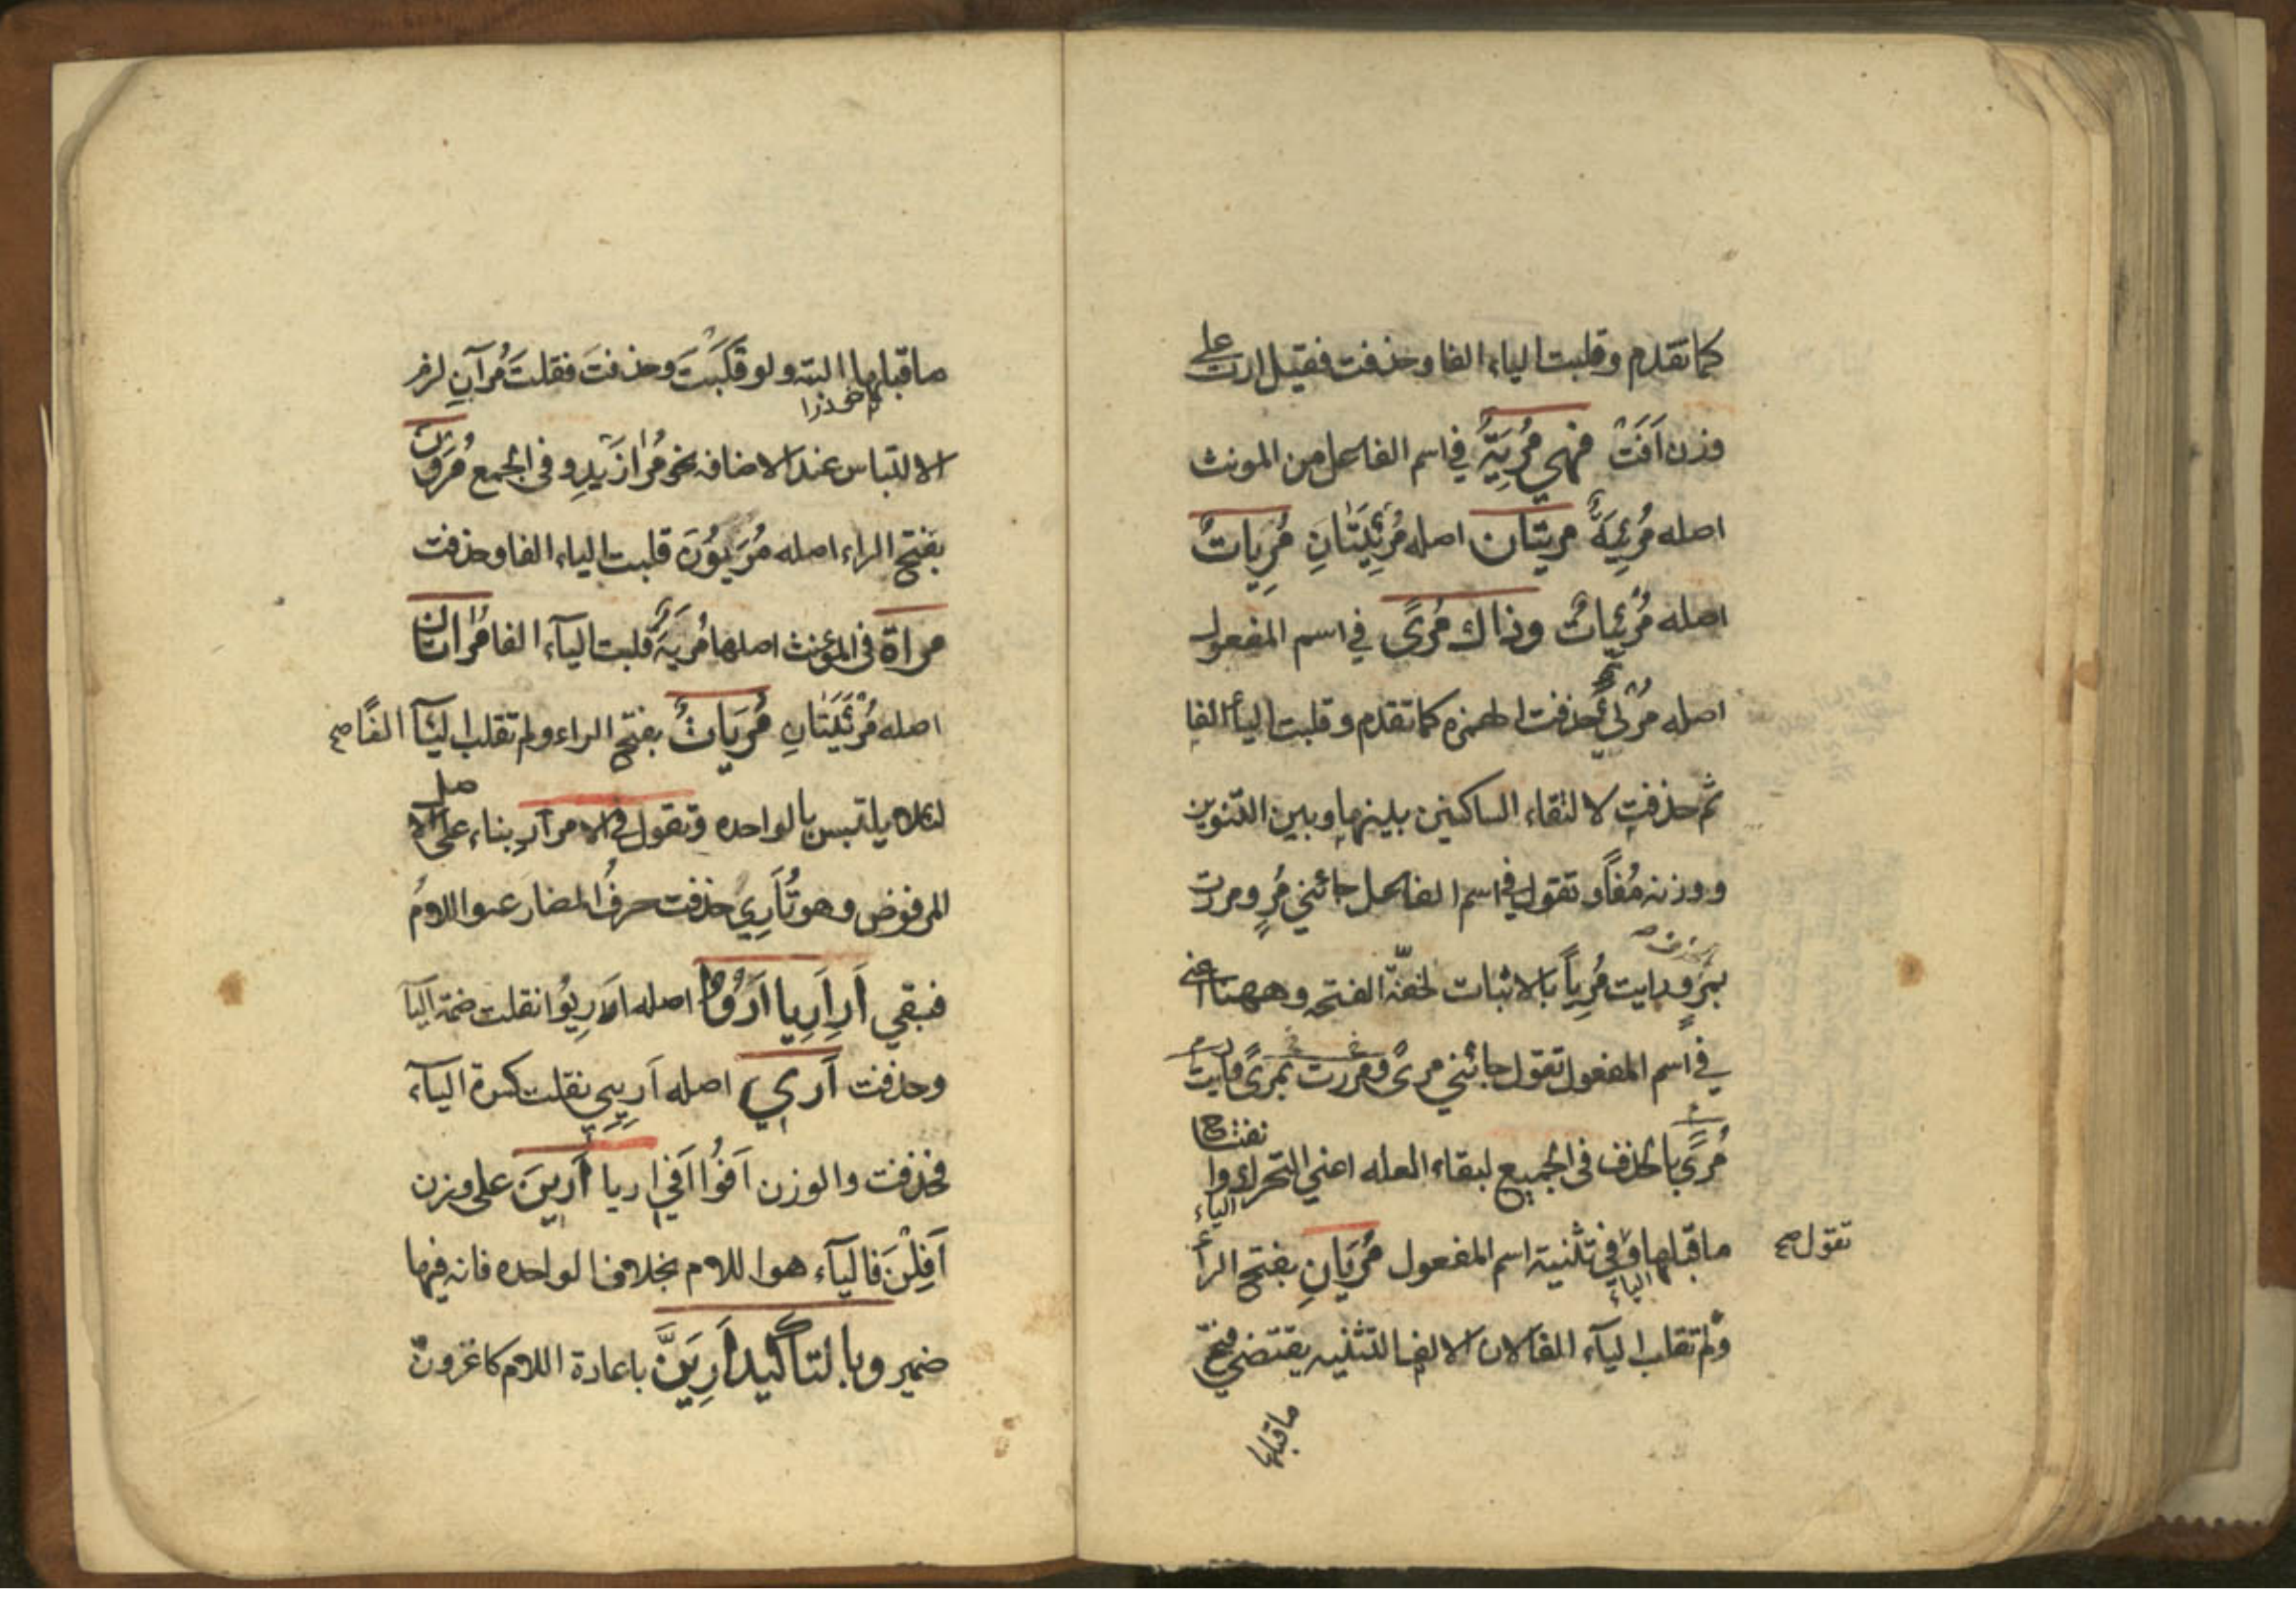 كما تقدم وقلبت الياء الفا وحذفت فقيل ارت على
وزن اَفَتْ فهي مُرِيَةٌ في اسم الفاعل من المونث
اصله مُرْئِيَةٌ مريتان اصله مُرْئِيَتَانِ مُرِيَاتٌ
اصله مُرْئِيَاتٌ وذاك مُرًى في اسم المفعول
اصله مُرْئَيٌ حذفت الهمزه كما تقدم وقلبت الياء الفا
ثم حذفت لالتقاء الساكنين بينها وبين التنوين
ووزنه مُفًا وتقول في اسم الفاعل جائني مُرٍ ومررت
بمُرٍ ورايت مُرِياً بالاثبات لخفّة الفتحه وههنا اعني
في اسم المفعول تقول جائني مرىً ومررت بمرىً ورايت
مُرًى بالحذف في الجميع لبقاء العله اعني التحرك وانفتاح
ما قبلها و في تثنية اسم المفعول مُرَيَانِ بفتح الراء
تقول صح
ولم تقلب اليآء الفا لان الالف التثنيه يقتضي فتح
ما قبلها
ما قبلها البته ولو قَلَبْتَ وحذفتَ فقلتَ مُرَآنِ لزم
الالتباس عند الاضافه نحو مُرَا زَيْدٍ وفى الجمع مُرَوْنَ
بفتح الراء اصله مُرَيُوْنَ قلبت الياء الفا وحذفت
مراة فى المؤنث اصلها مُرَيَةٌ قلبت اليآء الفا مُراتان
اصله مُرْئَيَتَانِ مُرَيَاتٌ بفتح الراء ولم تقلب اليآء الفًا صح
لئلا يلتبس بالواحده وتقول في الامر اَرِ بناء على الاصل
المرفوض وهو تُأَرِيُ حذفت حرفُ المضارعه واللامُ
فبقي اَرِ اَرِيا اَرُوْا اصله اَرِيُوْا نقلت ضمة اليآ
وحذفت اَرِي اصله اَرِيِي نقلت كسرة اليآء
فحذفت والوزن اَفُوْا اَفِي اريا اَرِيْنَ على وزن
اَفِلْنَ فاليآء هو اللام بخلاف الواحده فانه فيها
ضمير وبالتاكيد اَرِيَنَّ باعادة اللام كاغزونّ